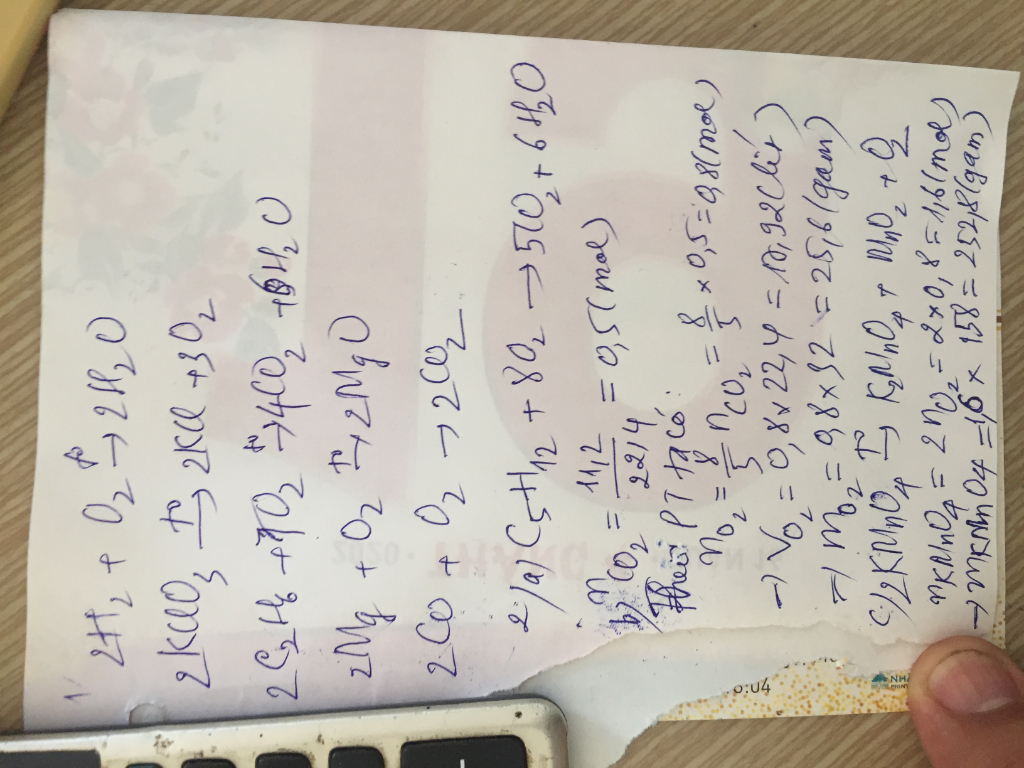 1
2H2 + O2 t° → 2H2O
2KClO3 t° → 2KCl + 3O2
2C2H6 + 7O2 t° → 4CO2 + 6H2O
2Mg + O2 t° → 2MgO
2CO + O2 → 2CO2
2/a) C5H12 + 8O2 → 5CO2 + 6H2O
b) nCO2 = 11,2 / 22,4 = 0,5 (mol)
Theo PT ta có:
nO2 = 8/5 nCO2 = 8/5 x 0,5 = 0,8 (mol)
→ VO2 = 0,8 x 22,4 = 17,92 (lít)
→ mO2 = 0,8 x 32 = 25,6 (gam)
c/ 2KMnO4 t° → K2MnO4 + MnO2 + O2
nKMnO4 = 2nO2 = 2 x 0,8 = 1,6 (mol)
→ mKMnO4 = 1,6 x 158 = 252,8 (gam)
16
2020
THÁNG
:04
NHÀ